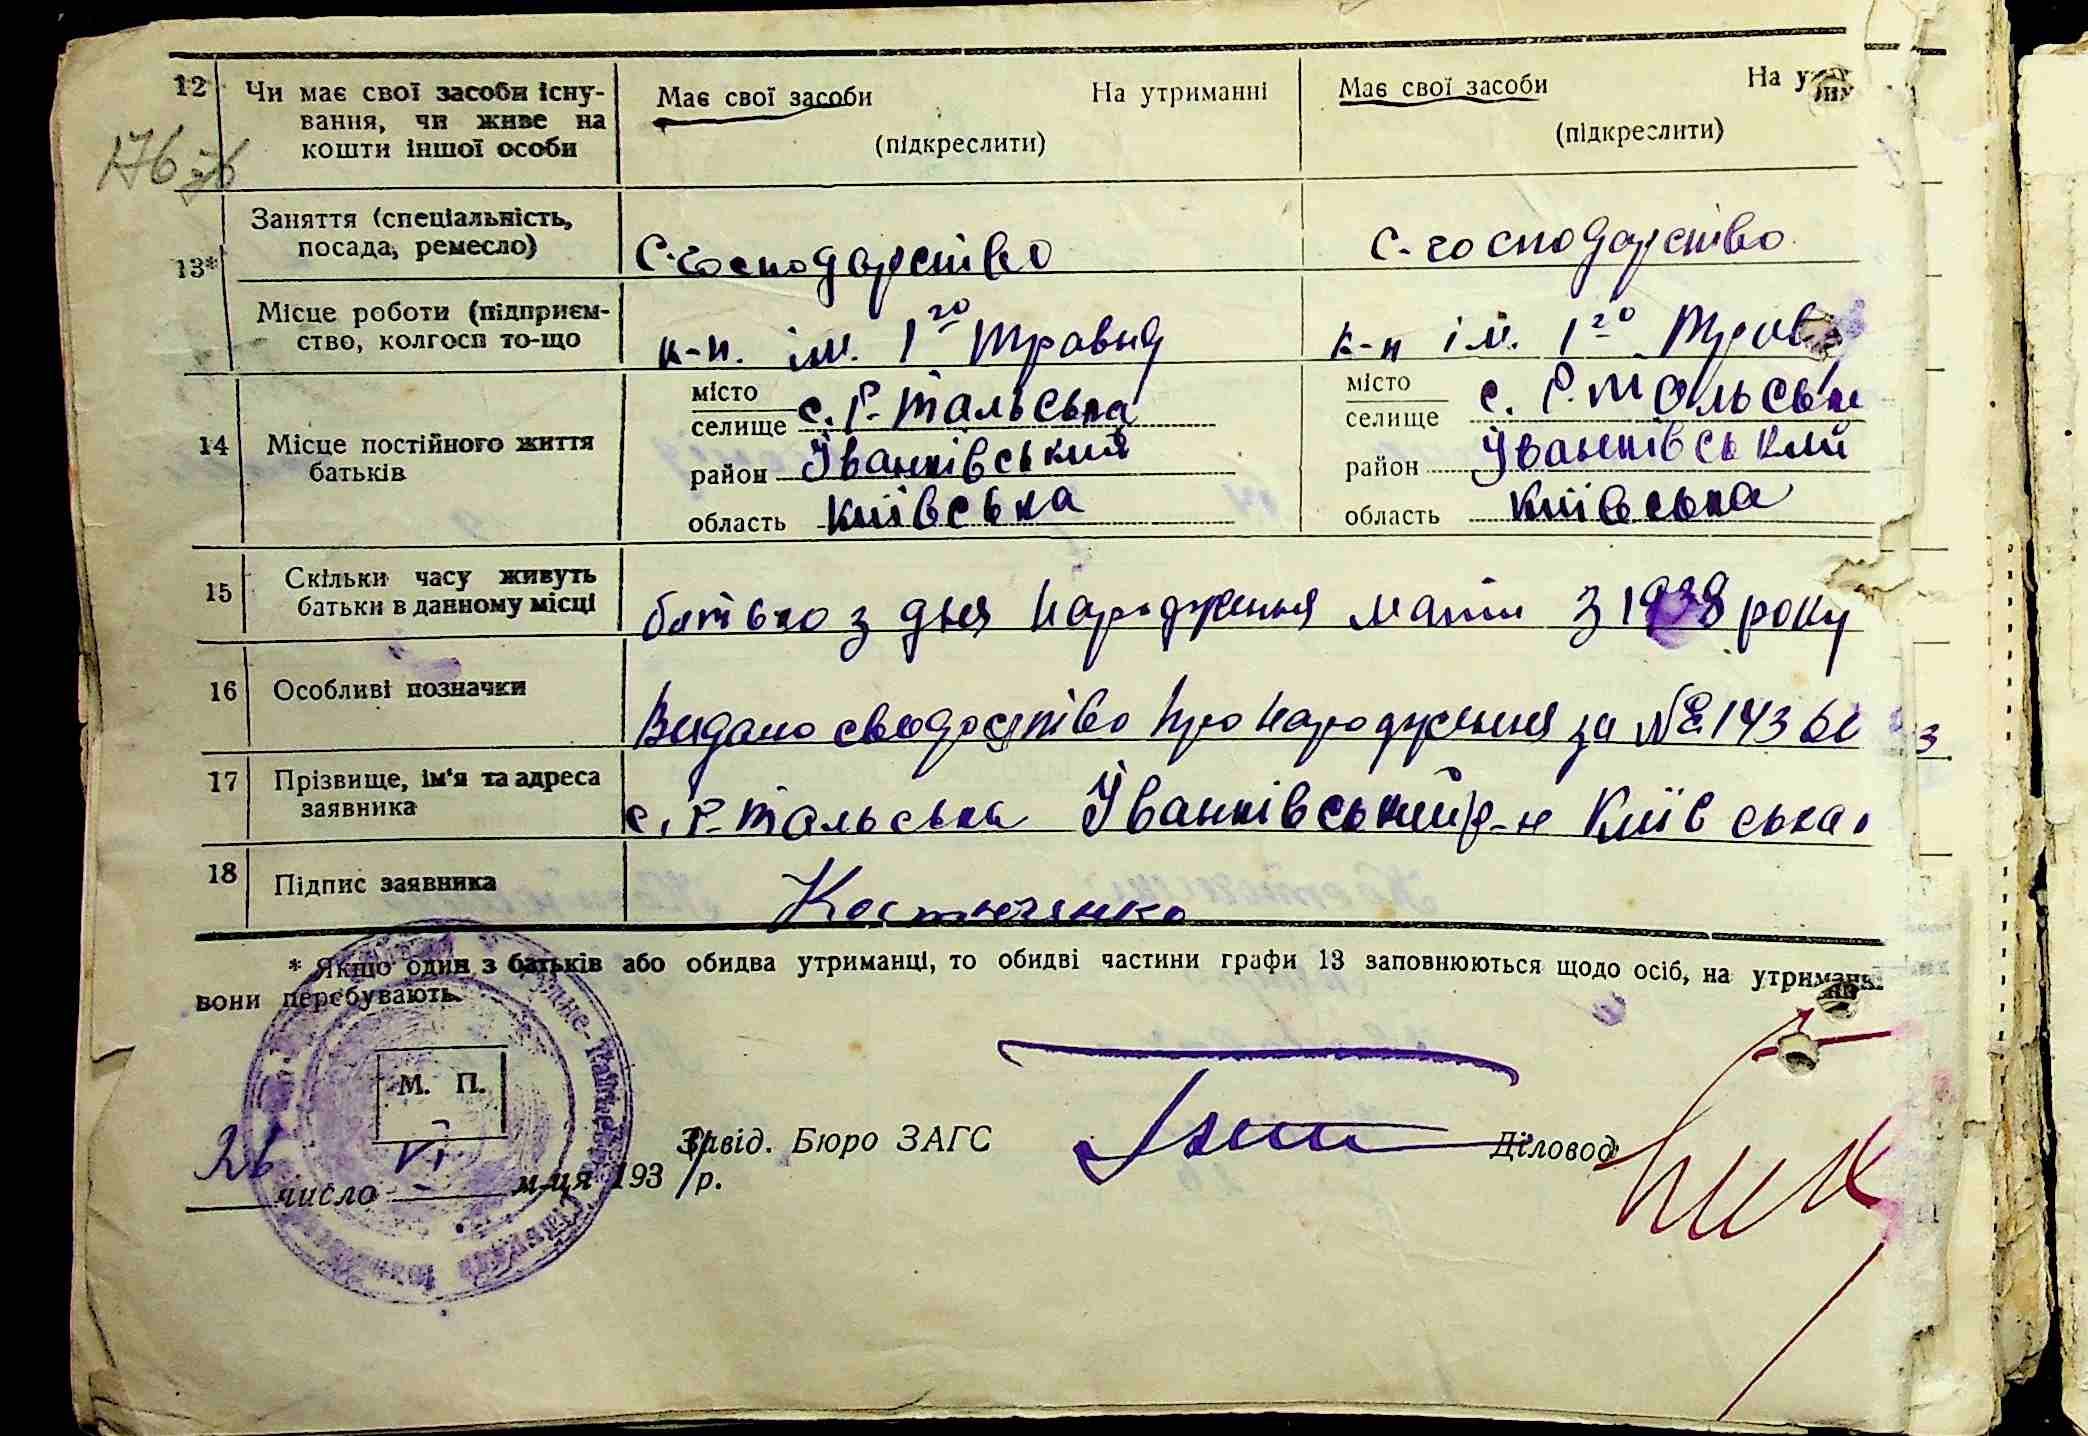 12 Чи має свої засоби існу- Має свої засоби На утриманні Має свої засоби На у
вання, чи живе на
кошти іншої особи (підкреслити) (підкреслити)
176
Заняття (спеціальність,
посада, ремесло) С-господарство С-господарство
13*
Місце роботи (підприєм-
ство, колгосп то-що к-п. ім. 1го Травня к-п ім. 1го Трав
14 Місце постійного життя
батьків
місто
селище с. Р-Тальська
район Іванківський
область Київська
місто
селище с. Р. Тальськ
район Іванківський
область Київська
15 Скільки часу живуть
батьки в данному місці батько з дня народження мати з 1938 року
16 Особливі позначки Видано свидоство про народження за №
17 Прізвище, ім'я та адреса
заявника с. Р-Тальська Іванківський р-н Київська
18 Підпис заявника Костюченко
* Якщо один з батьків або обидва утриманці, то обидві частини графи 13 заповнюються щодо осіб, на
вони перебувають.
М. П.
26 число VI м-ця 193 р.
Завід. Бюро ЗАГС
Діловод